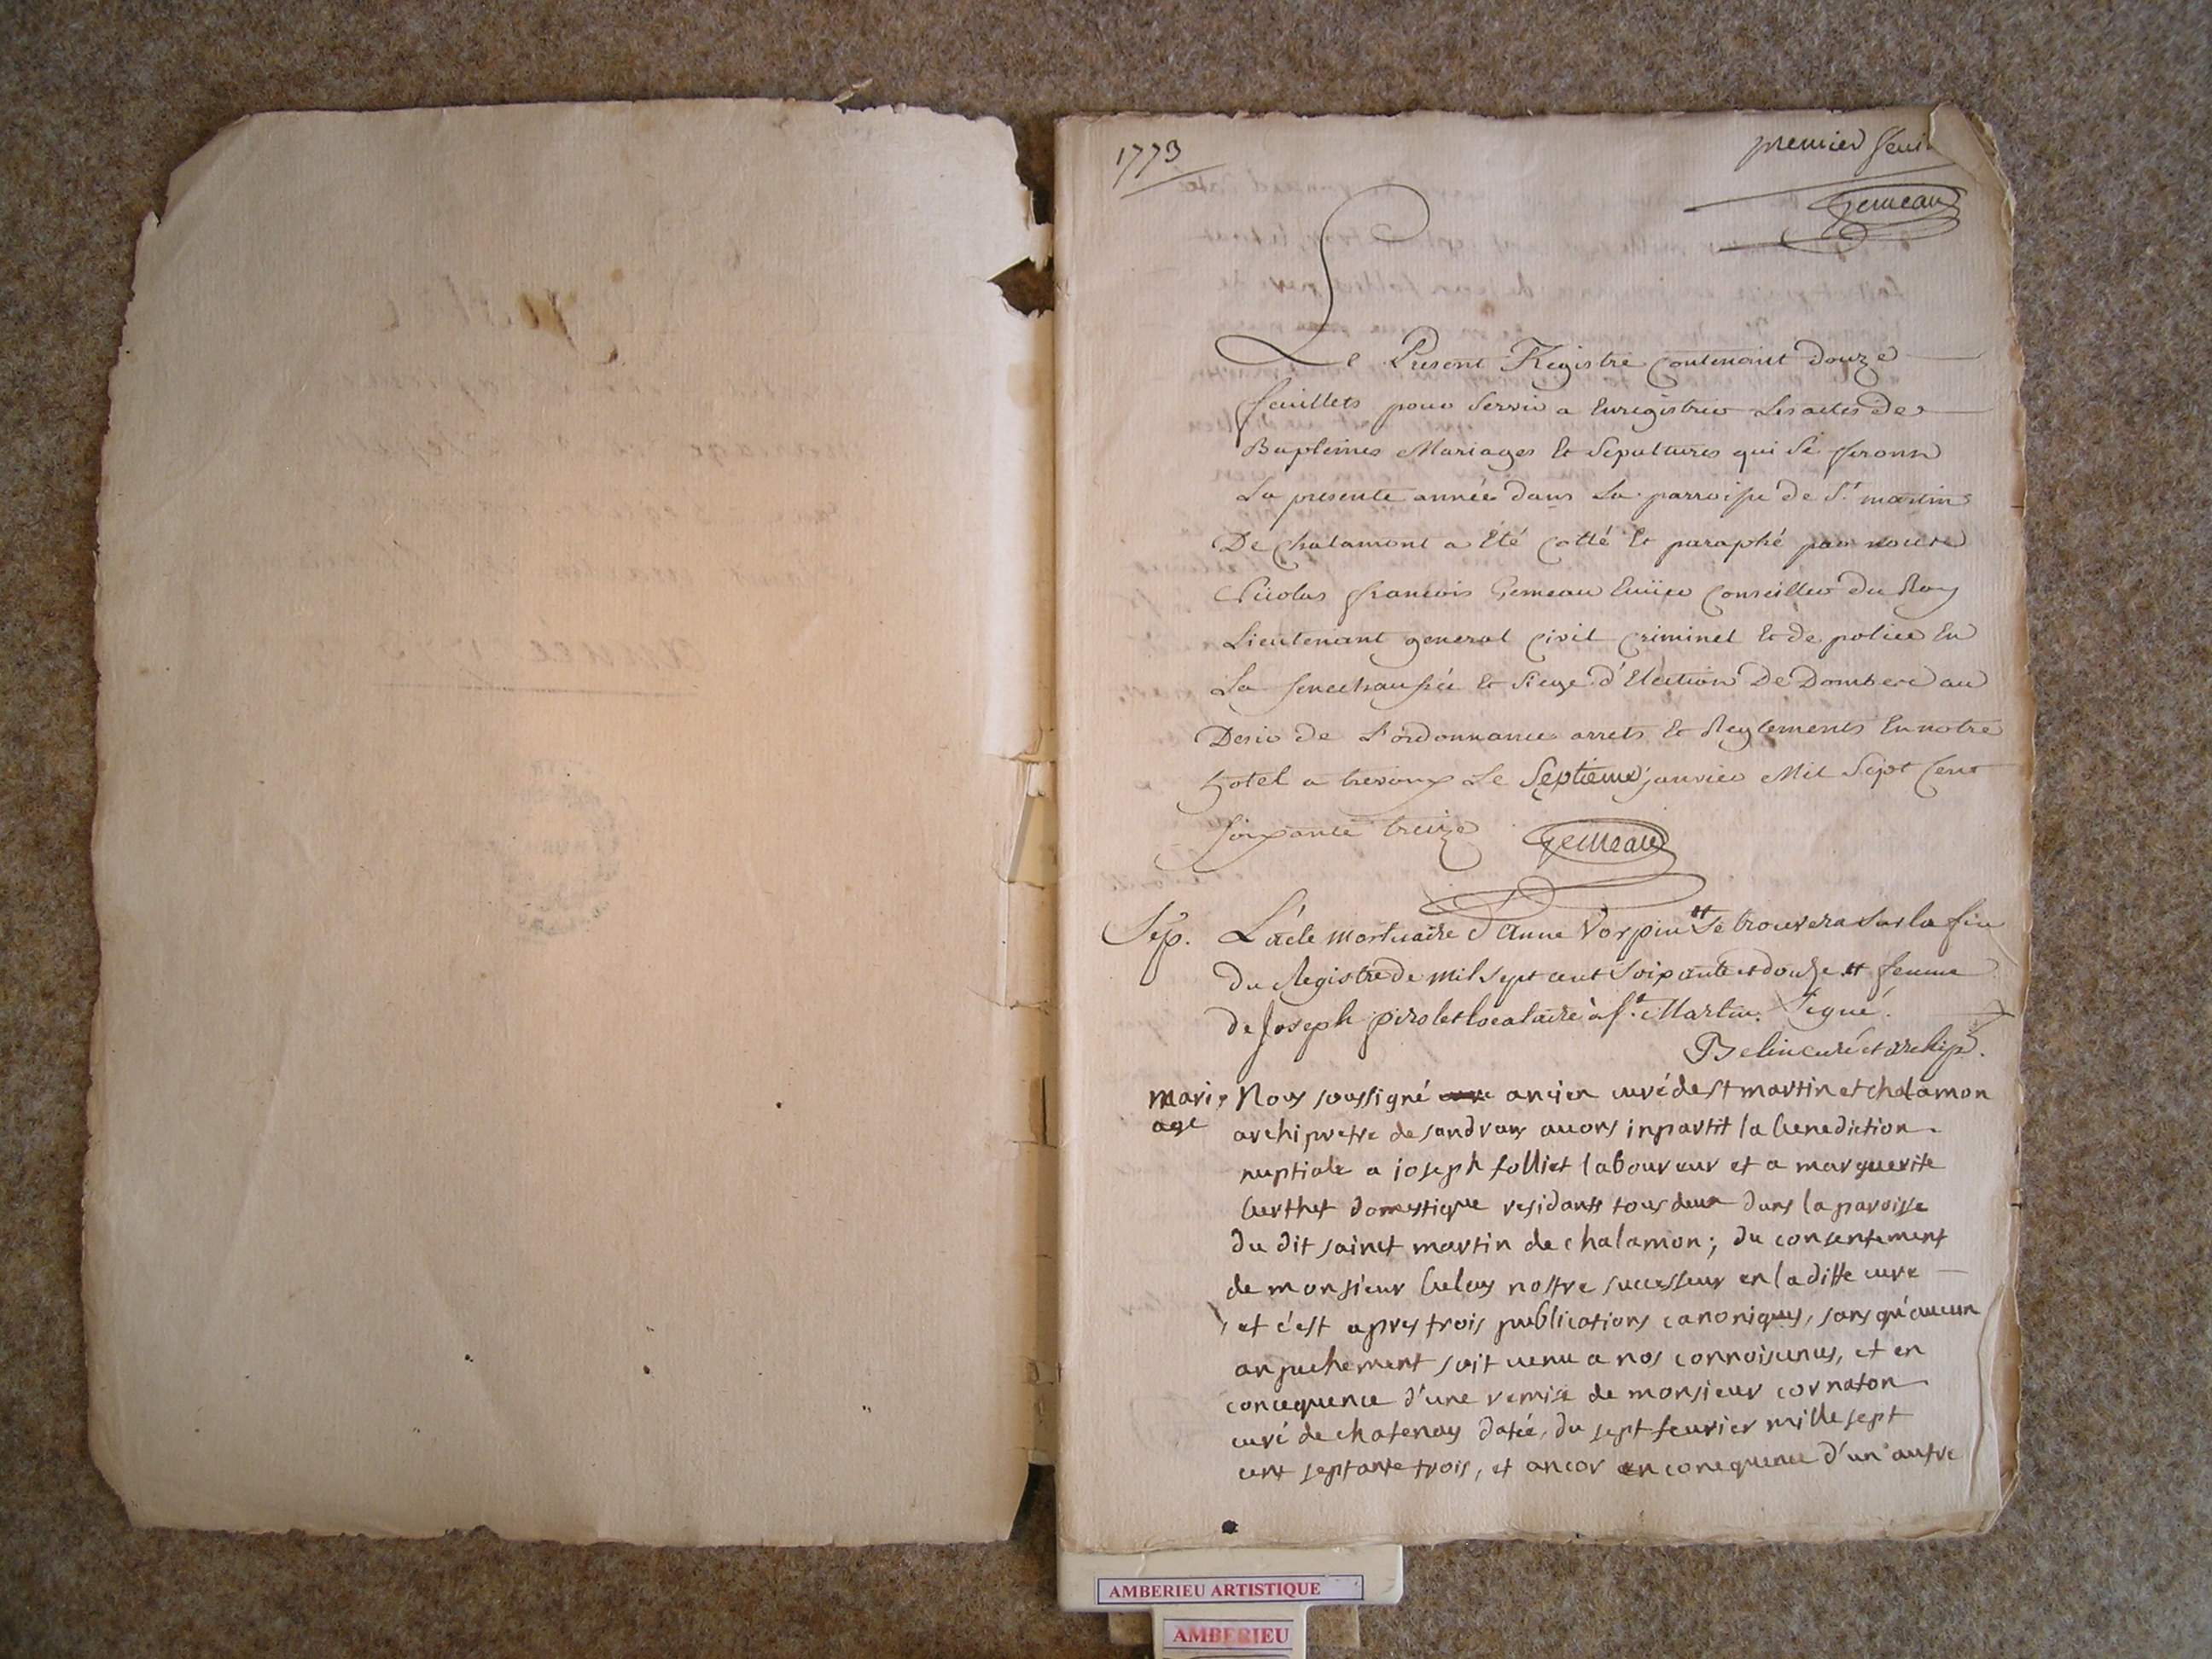 1773
premier feui
Gemeau
Le Present Registre Contenant Douze
feuillets pour Servir a Enregistrer Les actes de
Baptêmes Mariages Et Sepultures qui Se feronn
La presente année dans La parroisse de St. martin
De Chalamont a Eté Cotté Et paraphé par nous
Nicolas françois Gemeau Conseiller du Roy
Lieutenant general Civil Criminel Et de police En
La senechaussée Et Siege d'Election De Dombes au
Desir de L'ordonnance arrets Et Reglements En notre
hotel a trevoux Le Septieme janvier Mil Sept Cent
soixante treize Gemeau
Sep. L'acte mortuaire d'Anne Vorpin # Se trouvera Sur la fin
du Registre de mil sept cent soixante et douze # femme
de Joseph pirolet locataire à St. Martin. Signé.
Belin curé et archip.
mari, Nous soussigné ancien curé de st martin et chalamon
age archipretre de sandrans avons inpartit la benediction
nuptiale a joseph folliet laboureur et a marguerite
berthet domestique residants tous deux dans la paroisse
du dit sainct martin de chalamon; du consentement
de monsieur nostre successeur en la ditte cure
, et c'est apres trois publications canoniques, sans qu'aucun
anpechement soit venu a nos connoisences, et en
concequence d'une remise de monsieur cornaton
curé de chatenay datée, du sept fevrier mille sept
cent septante trois, et ancor en consequence d'un autre
AMBERIEU ARTISTIQUE
AMBERIEU